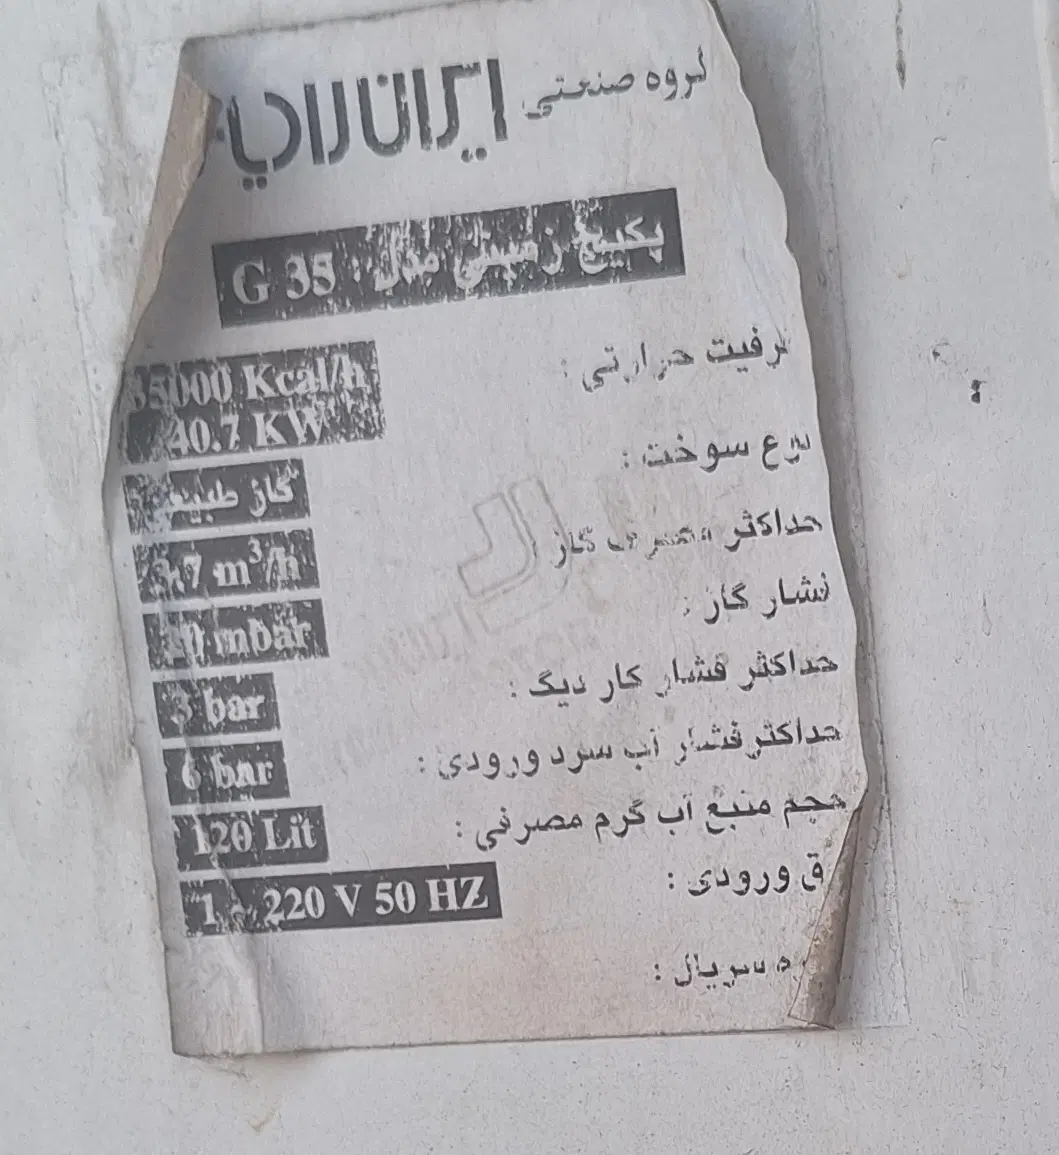 گروه صنعتی
ایران رادیا
پکیج زمینی مدل : G 35
ظرفیت حرارتی : 35000 Kcal/h
40.7 KW
نوع سوخت : گاز طبیعی
حداکثر مصرف گاز : m³/h
فشار گاز : mbar
حداکثر فشار کار دیگ : 3 bar
حداکثر فشار آب سرد ورودی : 6 bar
حجم منبع آب گرم مصرفی : 120 Lit
ورودی : 1 ~ 220 V 50 HZ
سریال :